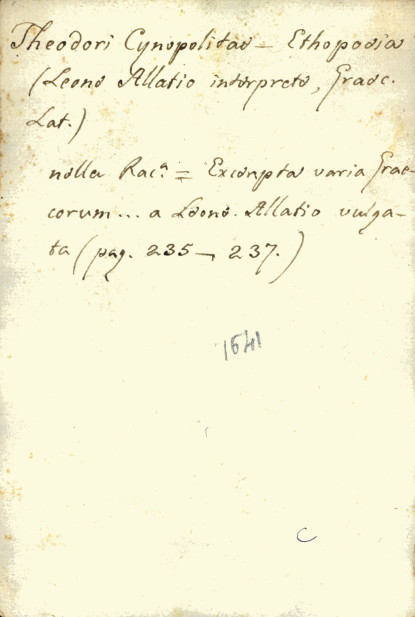 Theodori Cynopolitae – Ethopoeia
(Leone Allatio interprete, Graec.
Lat.)
nella Rac.ª = Excerpta varia Grae-
corum ... a Leone Allatio vulga-
ta (pag. 235 – 237.)
1641
C